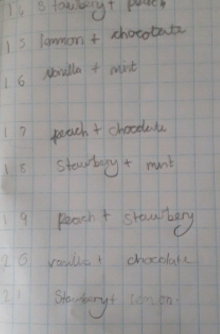 14 Stawbery + peach
15 lommon + chocolate
16 vanilla + mint
17 peach + chocolate
18 Stawbery + mint
19 Peach + stawbery
20 vanilla + chocolate
21 Stawbery + lemon.